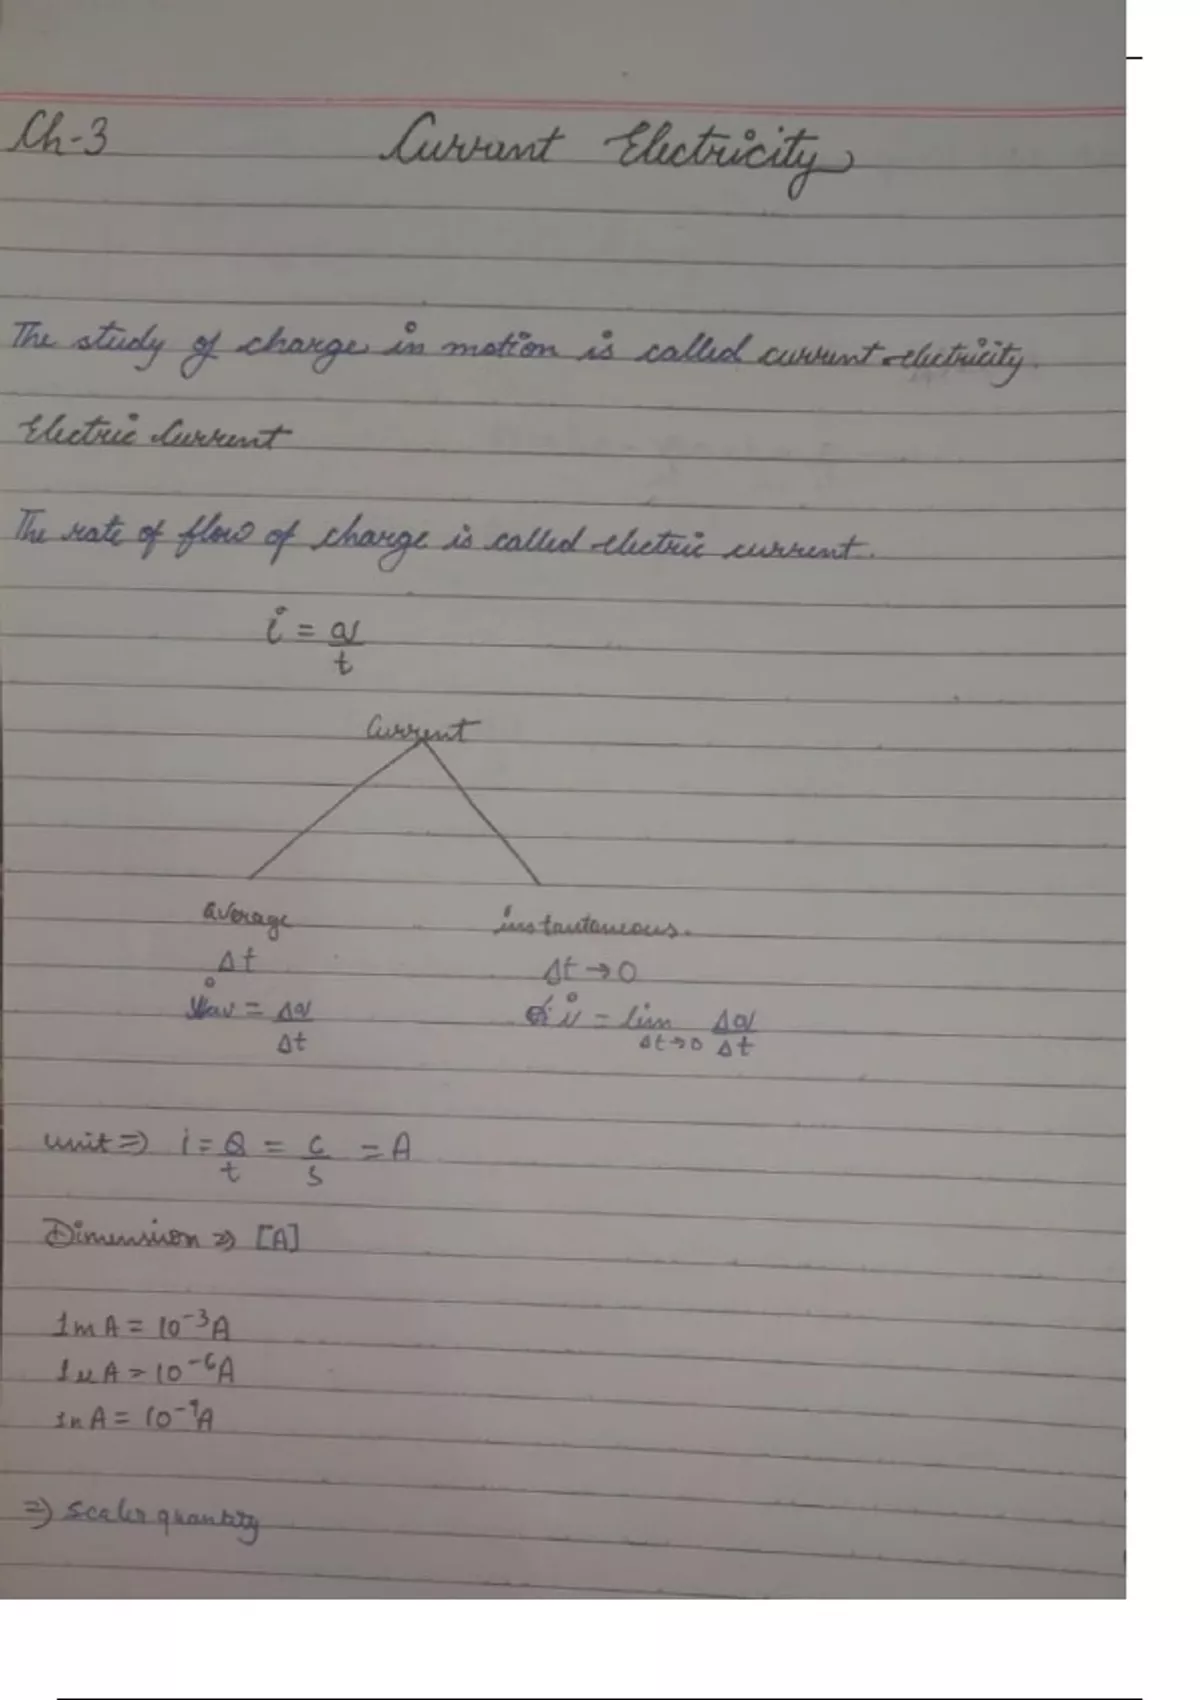 Ch-3 Current Electricity
The study of charge in motion is called current electricity.
Electric Current
The rate of flow of charge is called electric current.
i = q/t
Current
average instantaneous.
Δt Δt→0
iav = Δq/Δt i = lim Δt→0 Δq/Δt
unit ⇒ i = Q/t = C/S = A
Dimension ⇒ [A]
1mA = 10⁻³A
1μA = 10⁻⁶A
1nA = 10⁻⁹A
⇒ scaler quantity